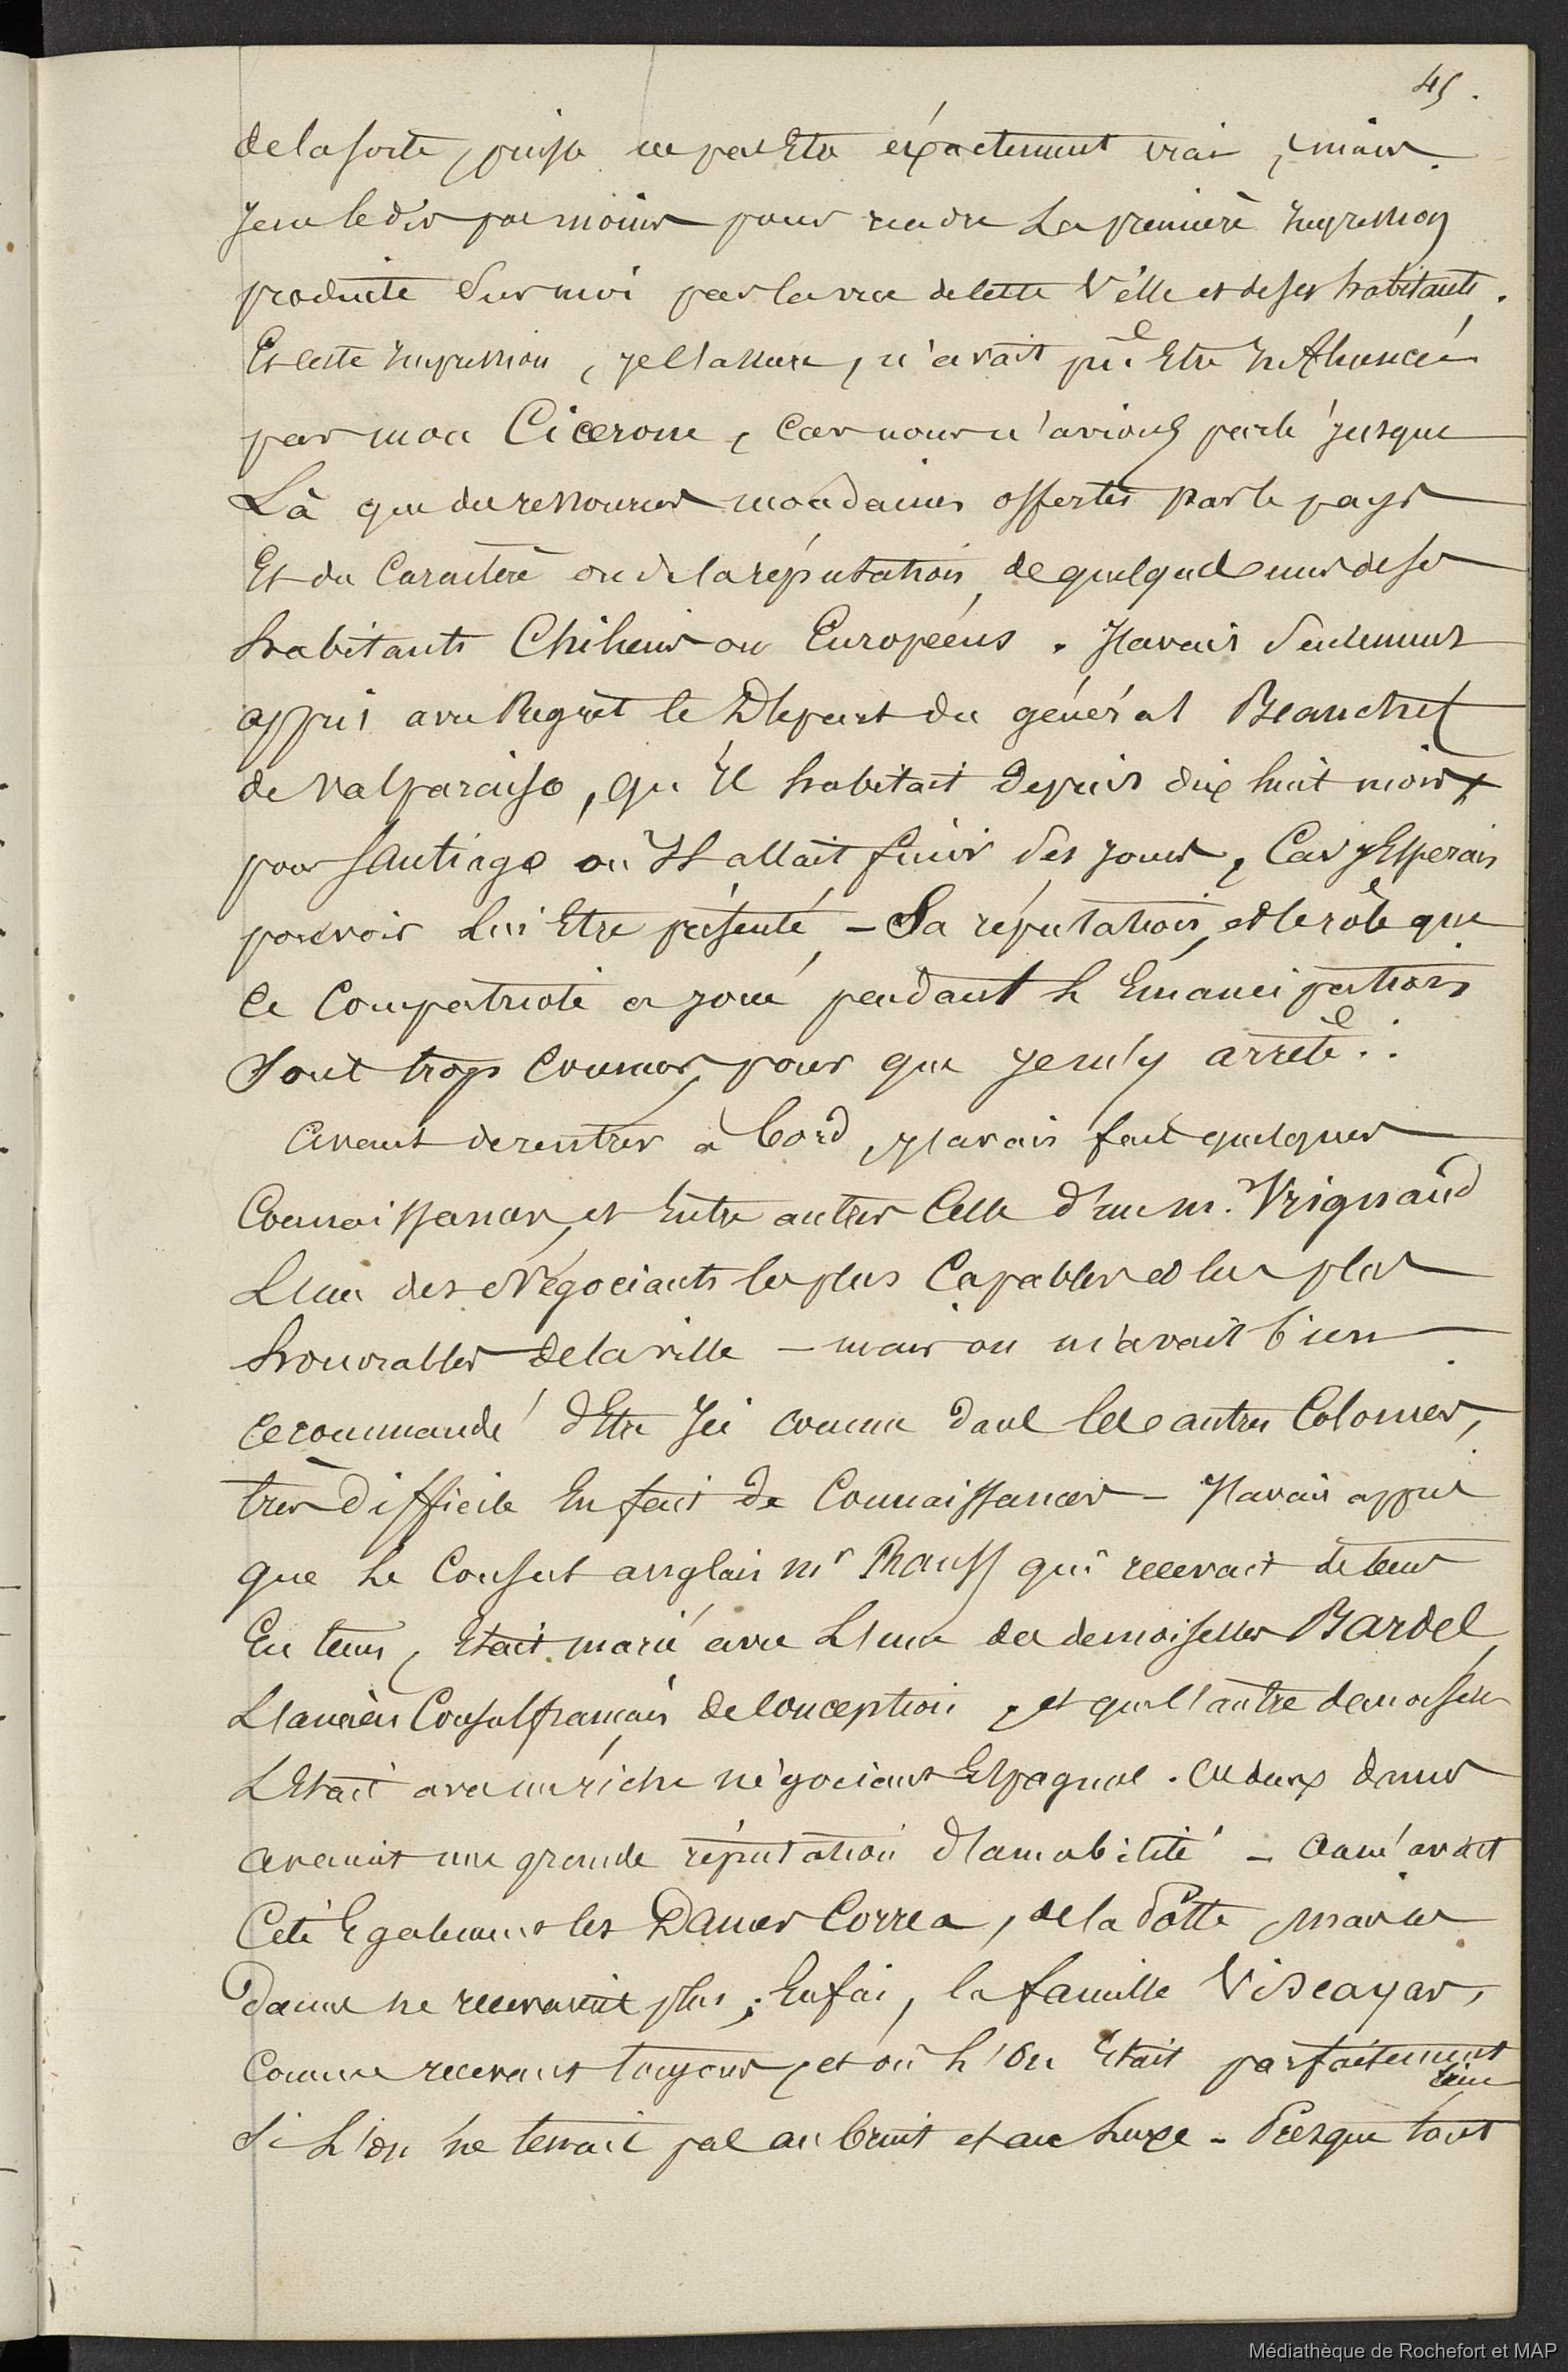 45.
de la sorte, puisse ne pas Etre éxactement vrai, mais
Je ne le dis pas moins pour rendre La premiere Impression
produite Sur moi par la vue de cette Ville et de ses habitants.
Et cette Impression, je l'assure, n'avait pu Etre Influencée
par mon Cicerone, Car nous n'avions parlé jusque
Là que des ressources mondaines offertes par le pays
Et du Caractère ou de la réputation, de quelques uns de ses
habitants Chiliens ou Européens. J'avais Seulement
appris avec Regret le Départ du général Beauchef
de Valparaiso, qu'Il habitait Depuis dix huit mois
pour Santiago où Il allait finir Ses jours, Car j'Esperais
pouvoir Lui Etre présenté, - Sa réputation, et le rôle que
Ce Compatriote a joué pendant L'Emancipation
Sont trop Connus, pour que je m'y arrête..
Avant de rentrer à bord, j'avais fait quelques
Connaissances, et Entre autres Celle d'un m. Vrignaud
L'un des Négociants les plus Capables et les plus
honorables de la ville - mais on m'avait bien
recommandé d'Etre Ici comme dans les autres Colonies,
très Difficile En fait de Connaissances - J'avais appris
que Le Consul anglais mr Rouss qui recevait de tems
En tems, Etait marié avec L'une des demoiselles Bardel,
L'ancien Consul français de Conception, et que l'autre demoiselle
L'Etait avec un riche négociant Espagnol. Ces deux dames
avaient une grande réputation d'amabilité - On m'avait
Cité Egalement les Dames Correa, de la Sotte, mais ces
Dames ne recevaient plus; Enfin, la famille Viscayar,
Comme recevant toujours, et où L'On Etait parfaitement
bien
Si L'on ne tenait pas au bruit et au Luxe - Presque tout
Médiathèque de Rochefort et MAP